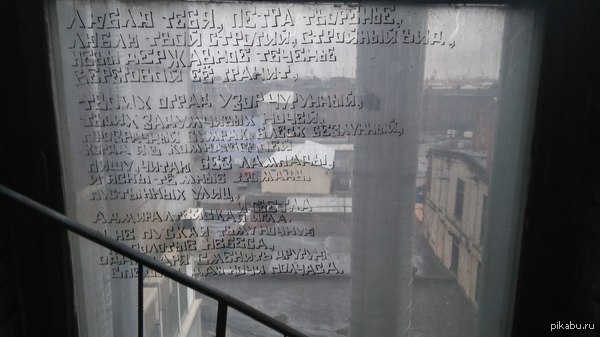 ЛЮБЛЮ ТЕБЯ, ПЕТРА ТВОРЕНЬЕ,
ЛЮБЛЮ ТВОЙ СТРОГИЙ, СТРОЙНЫЙ ВИД,
НЕВЫ ДЕРЖАВНОЕ ТЕЧЕНЬЕ
БЕРЕГОВОЙ ЕЁ ГРАНИТ,
ТВОИХ ОГРАД УЗОР ЧУГУННЫЙ,
ТВОИХ ЗАДУМЧИВЫХ НОЧЕЙ,
ПРОЗРАЧНЫЙ СУМРАК, БЛЕСК БЕЗЛУННЫЙ,
КОГДА Я В
ПИШУ, ЧИТАЮ БЕЗ ЛАМПАДЫ,
И ЯСНЫ ТЁМНЫЕ ГРОМАДЫ
ПУСТЫННЫХ УЛИЦ,
И СВЕТЛА
АДМИРАЛТЕЙСКАЯ ИГЛА.
И НЕ ПУСКАЯ ТЬМУ НОЧНУЮ
ЗОЛОТЫЕ НЕБЕСА,
ОДНА ЗАРЯ СМЕНИТЬ ДРУГУЮ
СПЕШИТ, ДАВ НОЧИ ПОЛЧАСА.
pikabu.ru